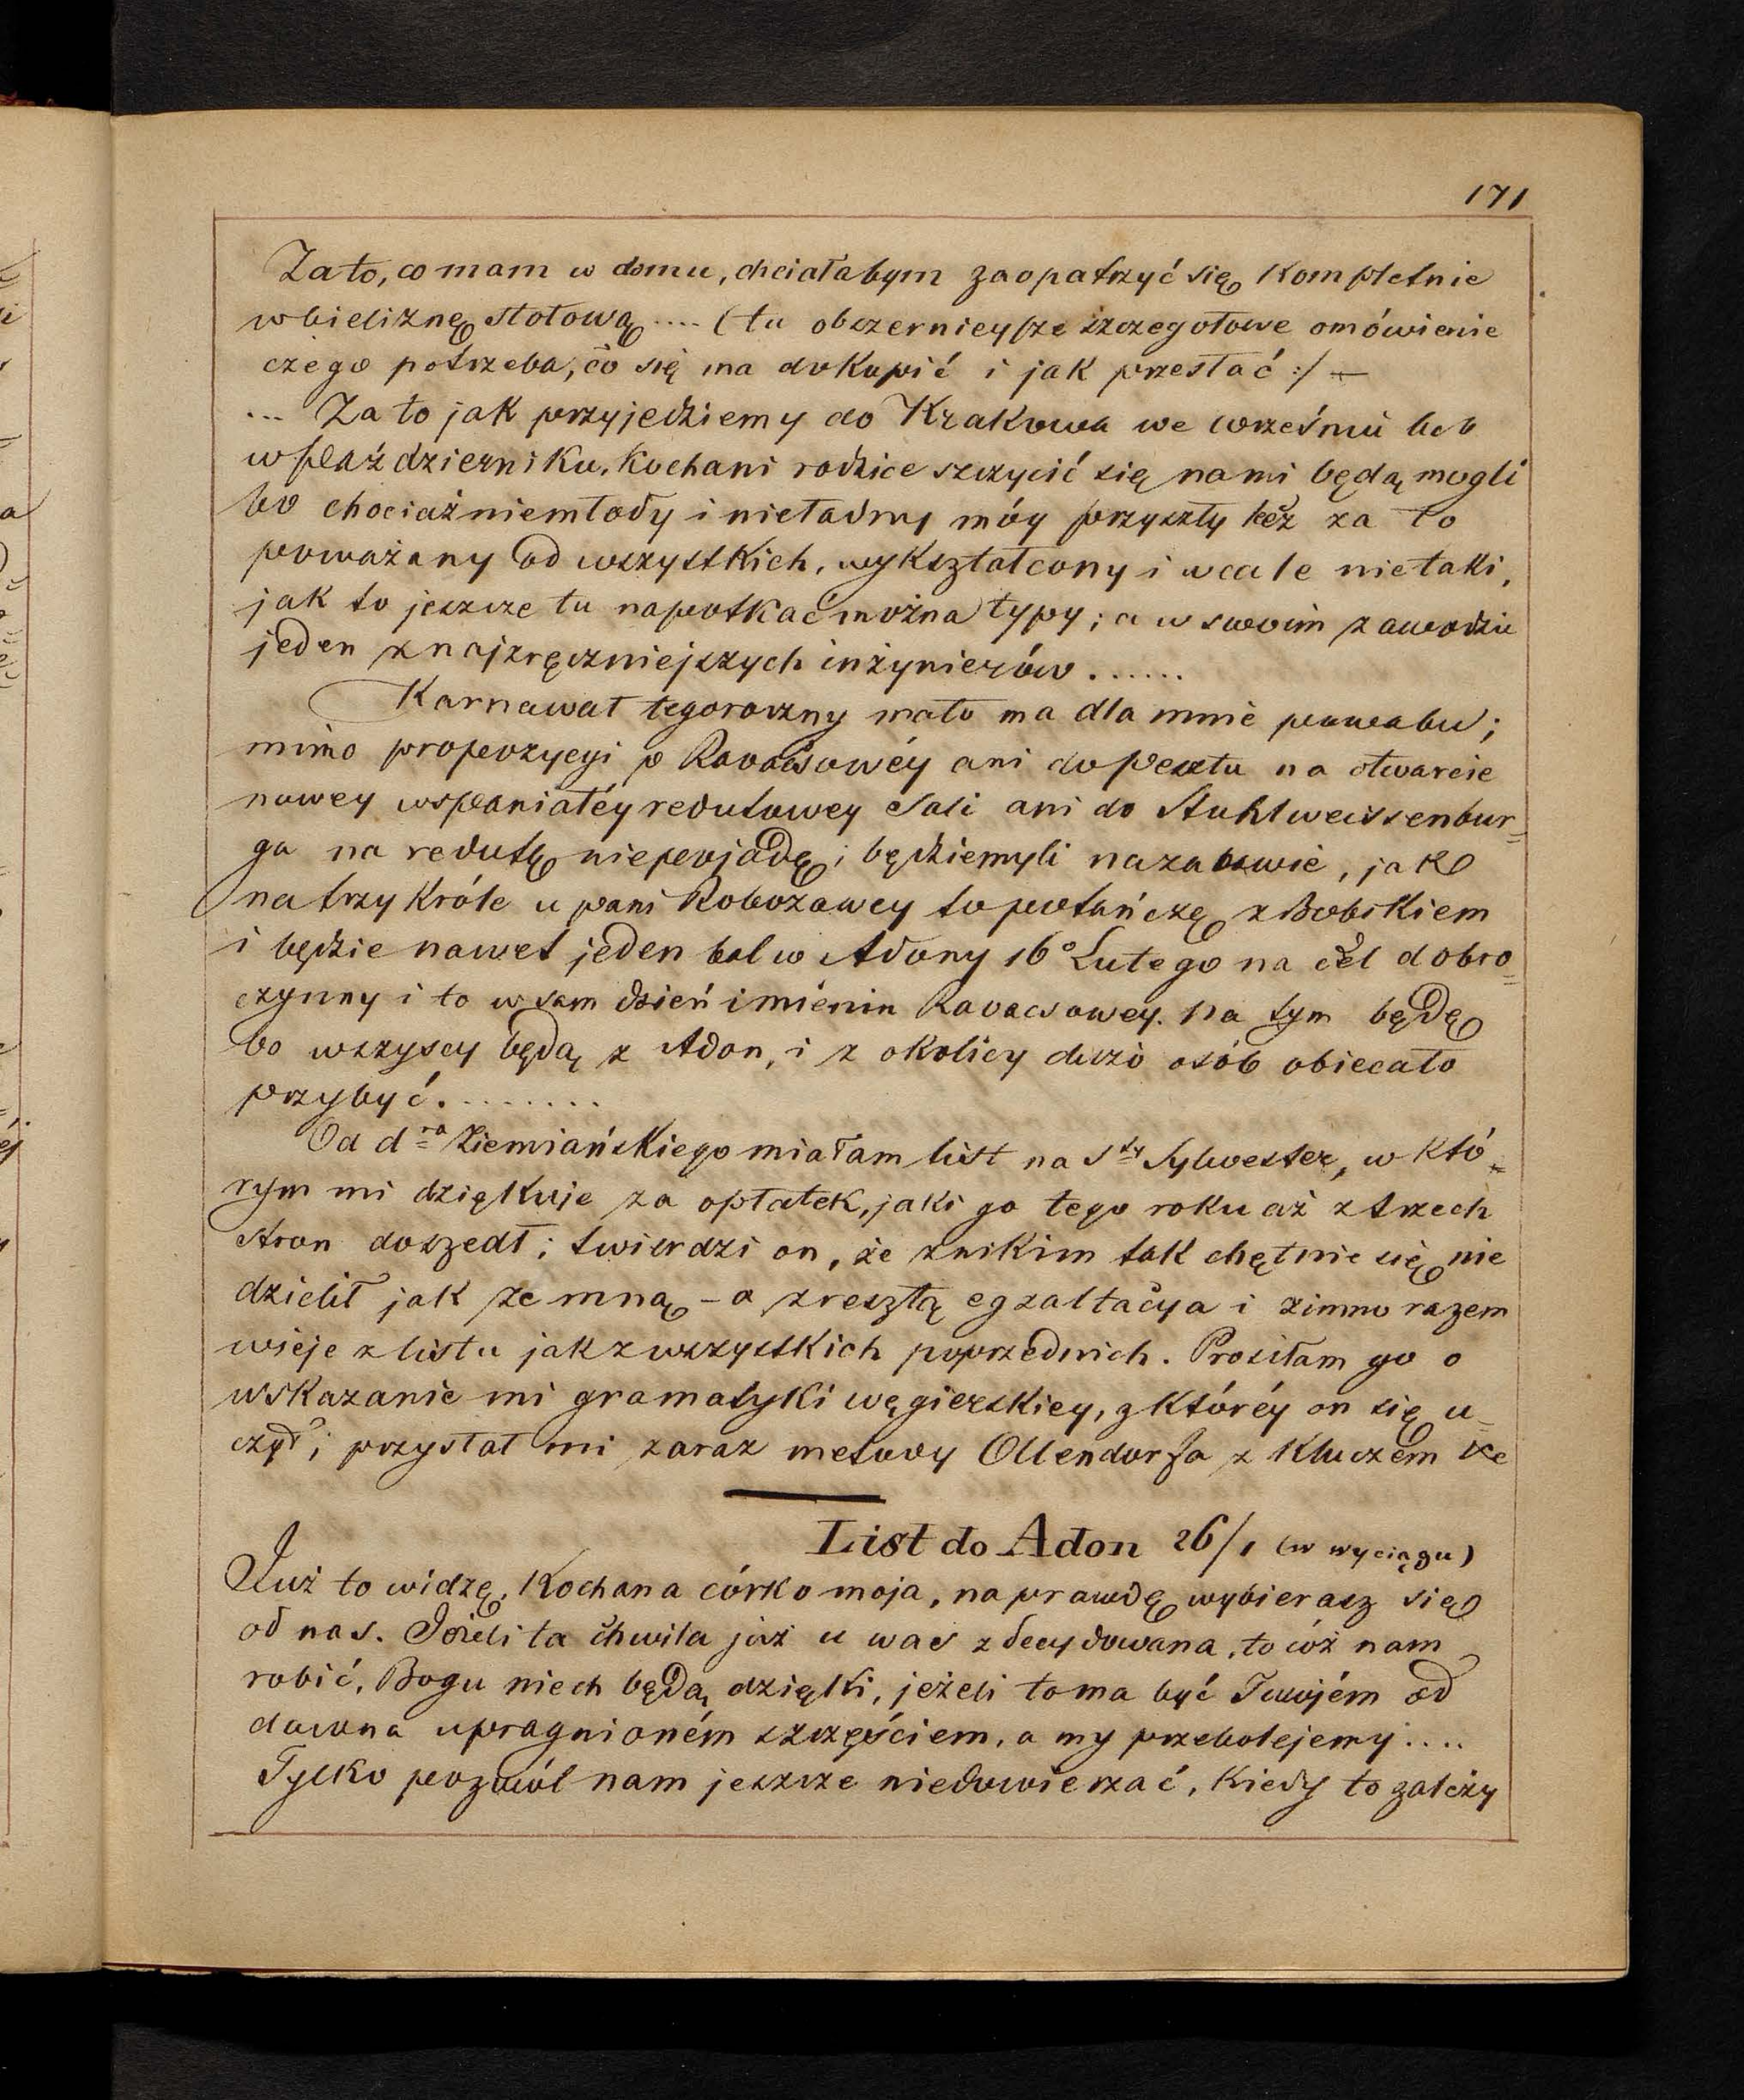 171
Za to, co mam w domu, chciałabym zaopatrzyć się kompletnie
w bieliznę stołową .... (tu obszerniejsze szczegółowe omówienie
czego potrzeba, co się ma dokupić i jak przesłać :/ —
... Za to jak przyjedziemy do Krakowa we wrześniu lub
w październiku, Kochani rodzice szczycić się nami będą mogli
bo chociaż niemłody i nieładny móy przyszły lecz za to
poważany od wszystkich, wykształcony i wcale nietaki,
jak to jeszcze tu napotkać można typy; a w swoim zawodzie
jeden z najzręczniejszych inżynierów ......
Karnawał tegoroczny mało ma dla mnie powabu;
mimo propozycyi p Kovacsowéy ani do Pesztu na otwarcie
nowey wspaniałéy redutowey Sali ani do Stuhlweissenbur=
ga na redutę niepojadę; będziemyli na zabawie, jak
na trzy Króle u pani Robozowey to potańczę z Bobskiem
i będzie nawet jeden bal w Adony 16° Lutego na cel dobro=
czynny i to w sam dzień imienin Kovacsowey. Na tym będę
bo wszyscy będą z Adon, i z okolicy dużo osób obiecało
przybyć. .......
Od dra Ziemiańskiego miałam list na Sty Sylwester, w któ=
rym mi dziękuje za opłatek, jaki go tego roku aż z trzech
stron doszedł; twierdzi on, że z nikim tak chętnie się nie
dzielił jak ze mną – a zresztą egzaltacya i zimno razem
wieje z listu jak z wszystkich poprzednich. Prosiłam go o
wskazanie mi gramatyki węgierskiey, z któréy on się u=
czył; przysłał mi zaraz metody Ollendorfa z Kluczem
List do Adon 26/1 (w wyciągu)
Już to widzę, Kochana córko moja, naprawdę wybierasz się
od nas. Jeżeli ta chwila już u was zdecydowana, to cóż nam
robić, Bogu niech będą dzięki, jeżeli to ma być Twojém od
dawna upragnioném szczęściem, a my przebolejemy ....
Tylko pozwól nam jeszcze niedowierzać, Kiedy to zależy